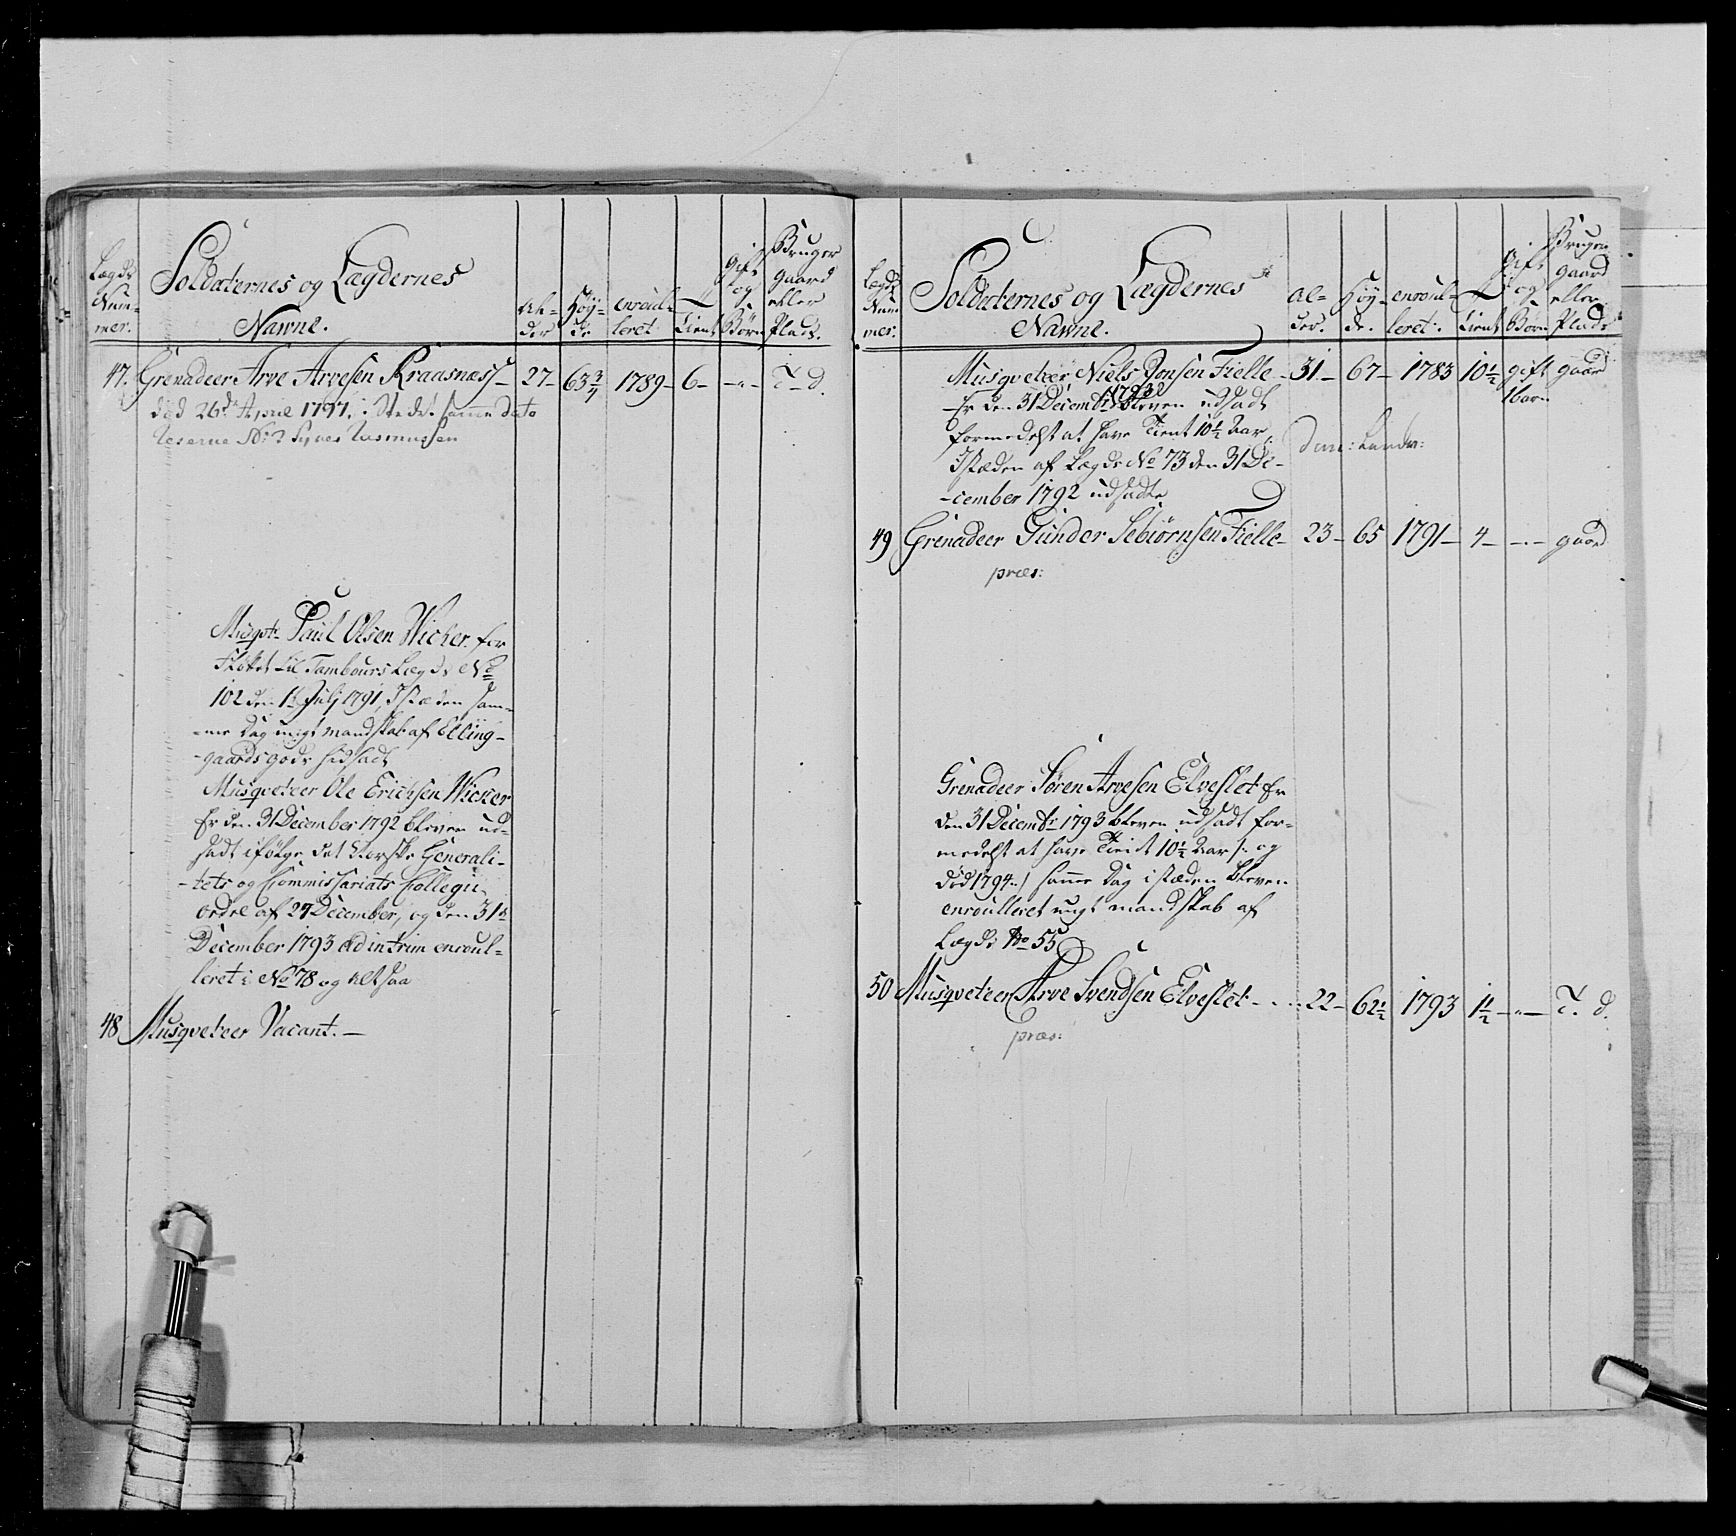 Lægds Num- mer. Soldaternes og Lægdernes Nawne. Al- der Høy- de enroul- leret Tient gift og Børn Bruger gaard eller Plads.
47. Grenadeer Arve Arvesen Kraasnæss 27 63 3/4 1789 6 - " - T d
død 26de April 1797, i Stedet samme Dato
Reserve No 2 Rasmussen
Musqtr Paul Olsen Wicker for
flöttet til Tambours Lægds No
102 den 1te Julj 1791, I stæden sam-
me Dag ungt mandskab af Elling-
gaards gods hidsadt
Musqveteer Ole Erichsen Wicker
Er den 31 December 1792 bleven ud-
sadt ifølge det Norske Generali-
tets og Commissariats Collegii
ordre af 27 December, og den 31te
December 1793 ad intrim enroul-
leret i No 78 og altsaa
48 Musqveteer Vacant. —
Lægds Num mer. Soldaternes og Lægdernes Nawne. Al- der. Høy- de. enroul- leret. Tient gift og Børn Bruger gaard eller Plads
Musqveteer Niels Jonsen Fielle 31 67 1783 10 1/2 gift 1 barn gaard
Er den 31 Decembr 1793 bleven udsadt
formedelst at have Tient 10 1/2 Aar,
I stæden af Lægds No 73 den 31 De-
cember 1792 udsadte
49 Grenadeer Gunder Sebiørnsen Fielle 23 65 1791 4 - - - gaard
præs:
Grenadeer Søren Arvesen Elveslet Er
den 31 Decembr 1793 bleven udsadt for-
medelst at have Tient 10 1/2 Aar /: og
død 1794 :/ samme Dag i stæden bleven
enroulleret ungt mandskab af
Lægds No 55
50 Musqveteer Arve Svendsen Elveslet 22 62 1/2 1793 1 1/2 - " - T. d.
præs: